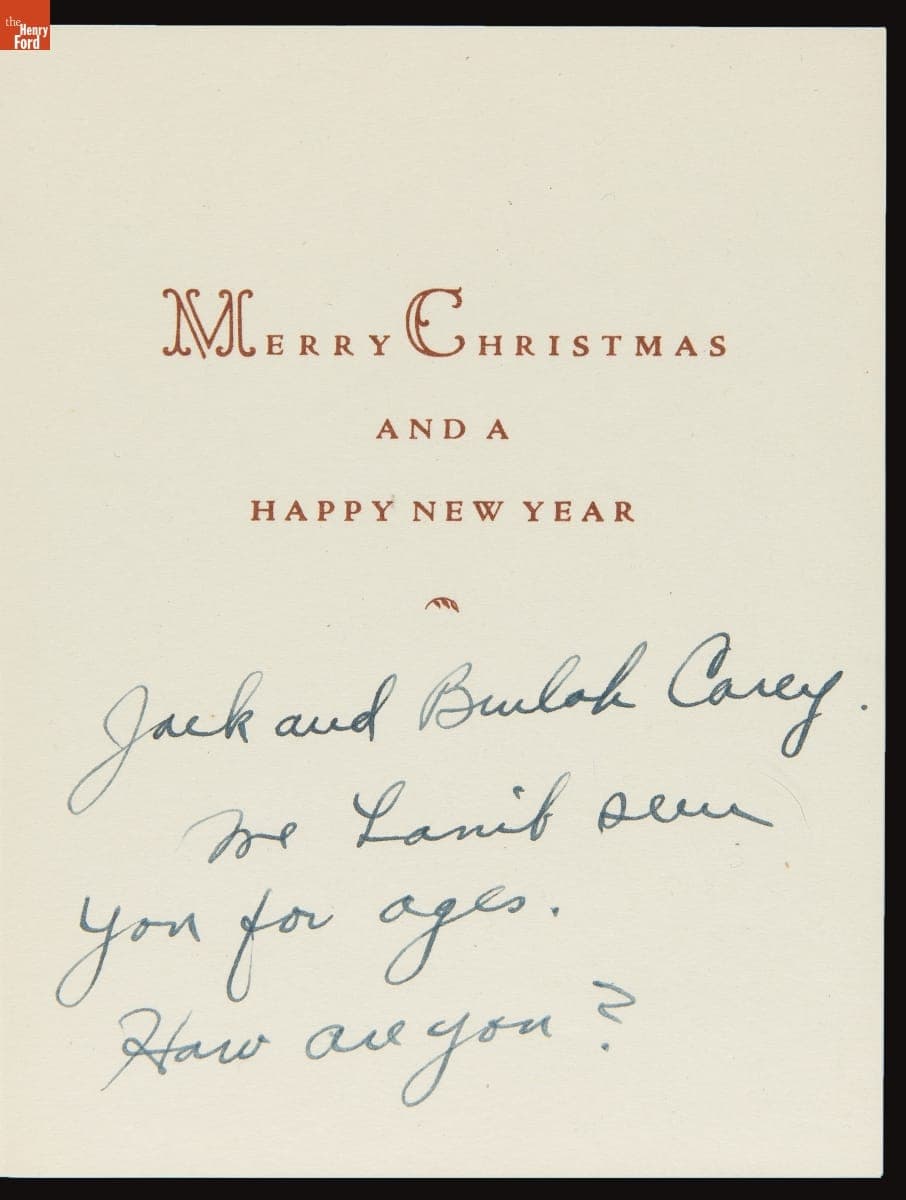 the
Henry
Ford
MERRY CHRISTMAS
AND A
HAPPY NEW YEAR
Jack and Beulah Carey.
We seen
you for ages.
How are you?